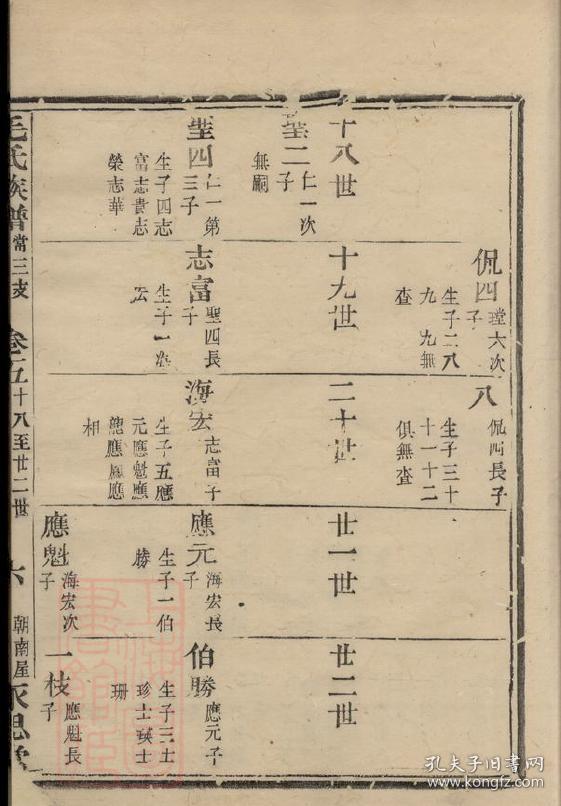 十八世
二
仁一次
子
無嗣
四
仁一第
三子
生子四志
富志貴志
榮志華
侃四
六次
子
生子二八
九 九無
查
十九世
志富
聖四長
子
生子一海
宏
八
侃四長子
生子三十
十一十二
俱無查
二十世
海宏
志富子
生子五應
元應魁應
龍應鳳應
相
廿一世
應元
海宏長
子
生子一伯
勝
應魁
海宏次
子
廿二世
伯勝
應元子
生子三士
珍士瑛士
珊
一枝
應魁長
子
毛氏族譜
常三支
卷五
十八至廿二世
六
朝南屋
永思堂
孔夫子旧书网
www.kongfz.com